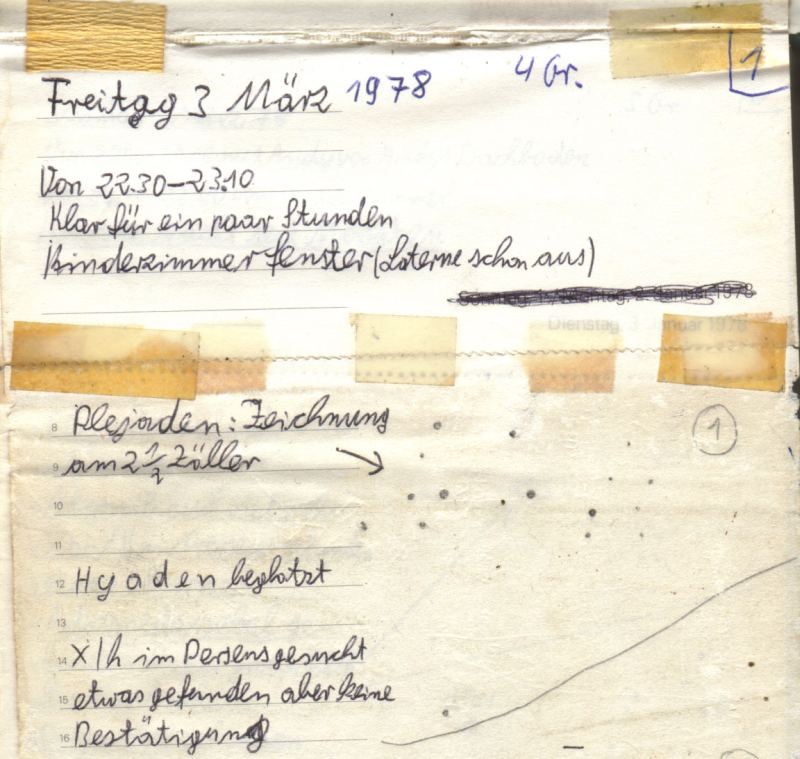 Freitag 3 März 1978 4 Gr. 1
Von 22.30-23.10
Klar für ein paar Stunden
Kinderzimmerfenster (Laterne schon aus)
Dienstag, 3. Januar 1978
8 Plejaden: Zeichnung 1
9 am 2 1/2 Zöller
10
11
12 Hyaden beglotzt
13
14 X/h im Perseus gesucht
15 etwas gefunden aber keine
16 Bestätigung